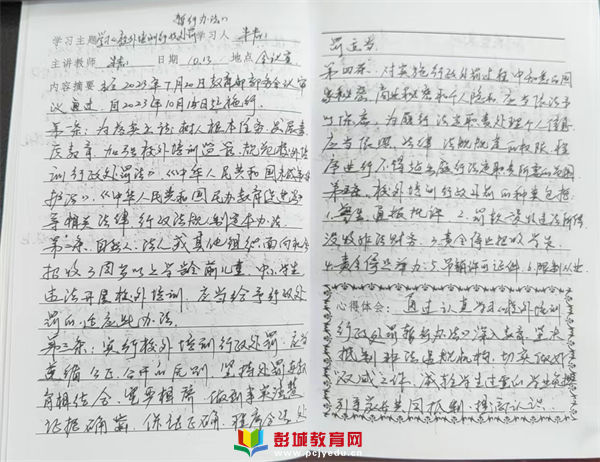 暂行办法》
学习主题 学习《校外培训行政处罚 学习人
主讲教师 日期 10.13 地点 会议室
内容摘要 于2023年7月20日教育部部务会议审
议通过,自2023年10月15日起施行。
第一条:为落实立德树人根本任务,发展素
质教育,加强校外培训监管,规范校外培
训行政处罚法》《中华人民共和国未成年人
护法》《中华人民共和国民办教育促进法》
等相关法律、行政法规,制定本办法。
第二条:自然人、法人或其他组织面向社会
招收3周岁以上学龄前儿童、中小学生
违法开展校外培训,应当给予行政处
罚的,适应此办法。
第三条:实行校外培训行政处罚,应当
遵循公正、公开的原则,坚持处罚与教
育相结合,宽严相济,做到事实清楚
证据确凿,依法正确,程序合法,处
罚适当。
第四条:对实施行政处罚过程中知悉的国
家秘密、商业秘密和个人隐私,应当依法予
以保密。为履行法定职责处理个人信息
应当依照法律、法规规定的权限、程
序进行,不得超出履行法定职责所需的范围
第五条:校外培训行政处罚的种类包括:
1.警告、通报批评 2.罚款、没收违法所得、
没收非法财物 3.责令停止招收学员
4.责令停止举办 5.吊销许可证件 6.限制从业
心得体会: 通过认真学习《校外培训
行政处罚暂行办法》深入教育,坚决
抵制非法违规机构,切实做好
双减工作。
引导家长共同抵制,提高认识。
彭城教育网
www.pcjyedu.com